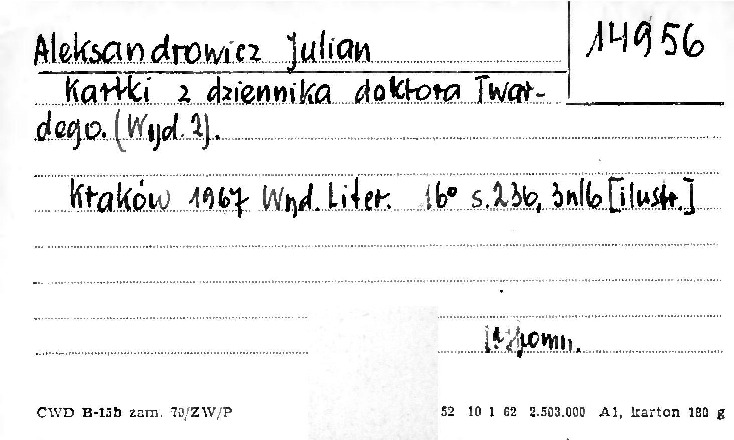 Aleksandrowicz Julian
14956
Kartki z dziennika doktora Twar-
dego. (Wyd. 2).
Kraków 1967 Wyd. Liter. 16° s. 236, 3nlb [ilustr.]
pomn.
CWD B-15b zam. 70/ZW/P
52 10 1 62 2.503.000 A1, karton 180 g